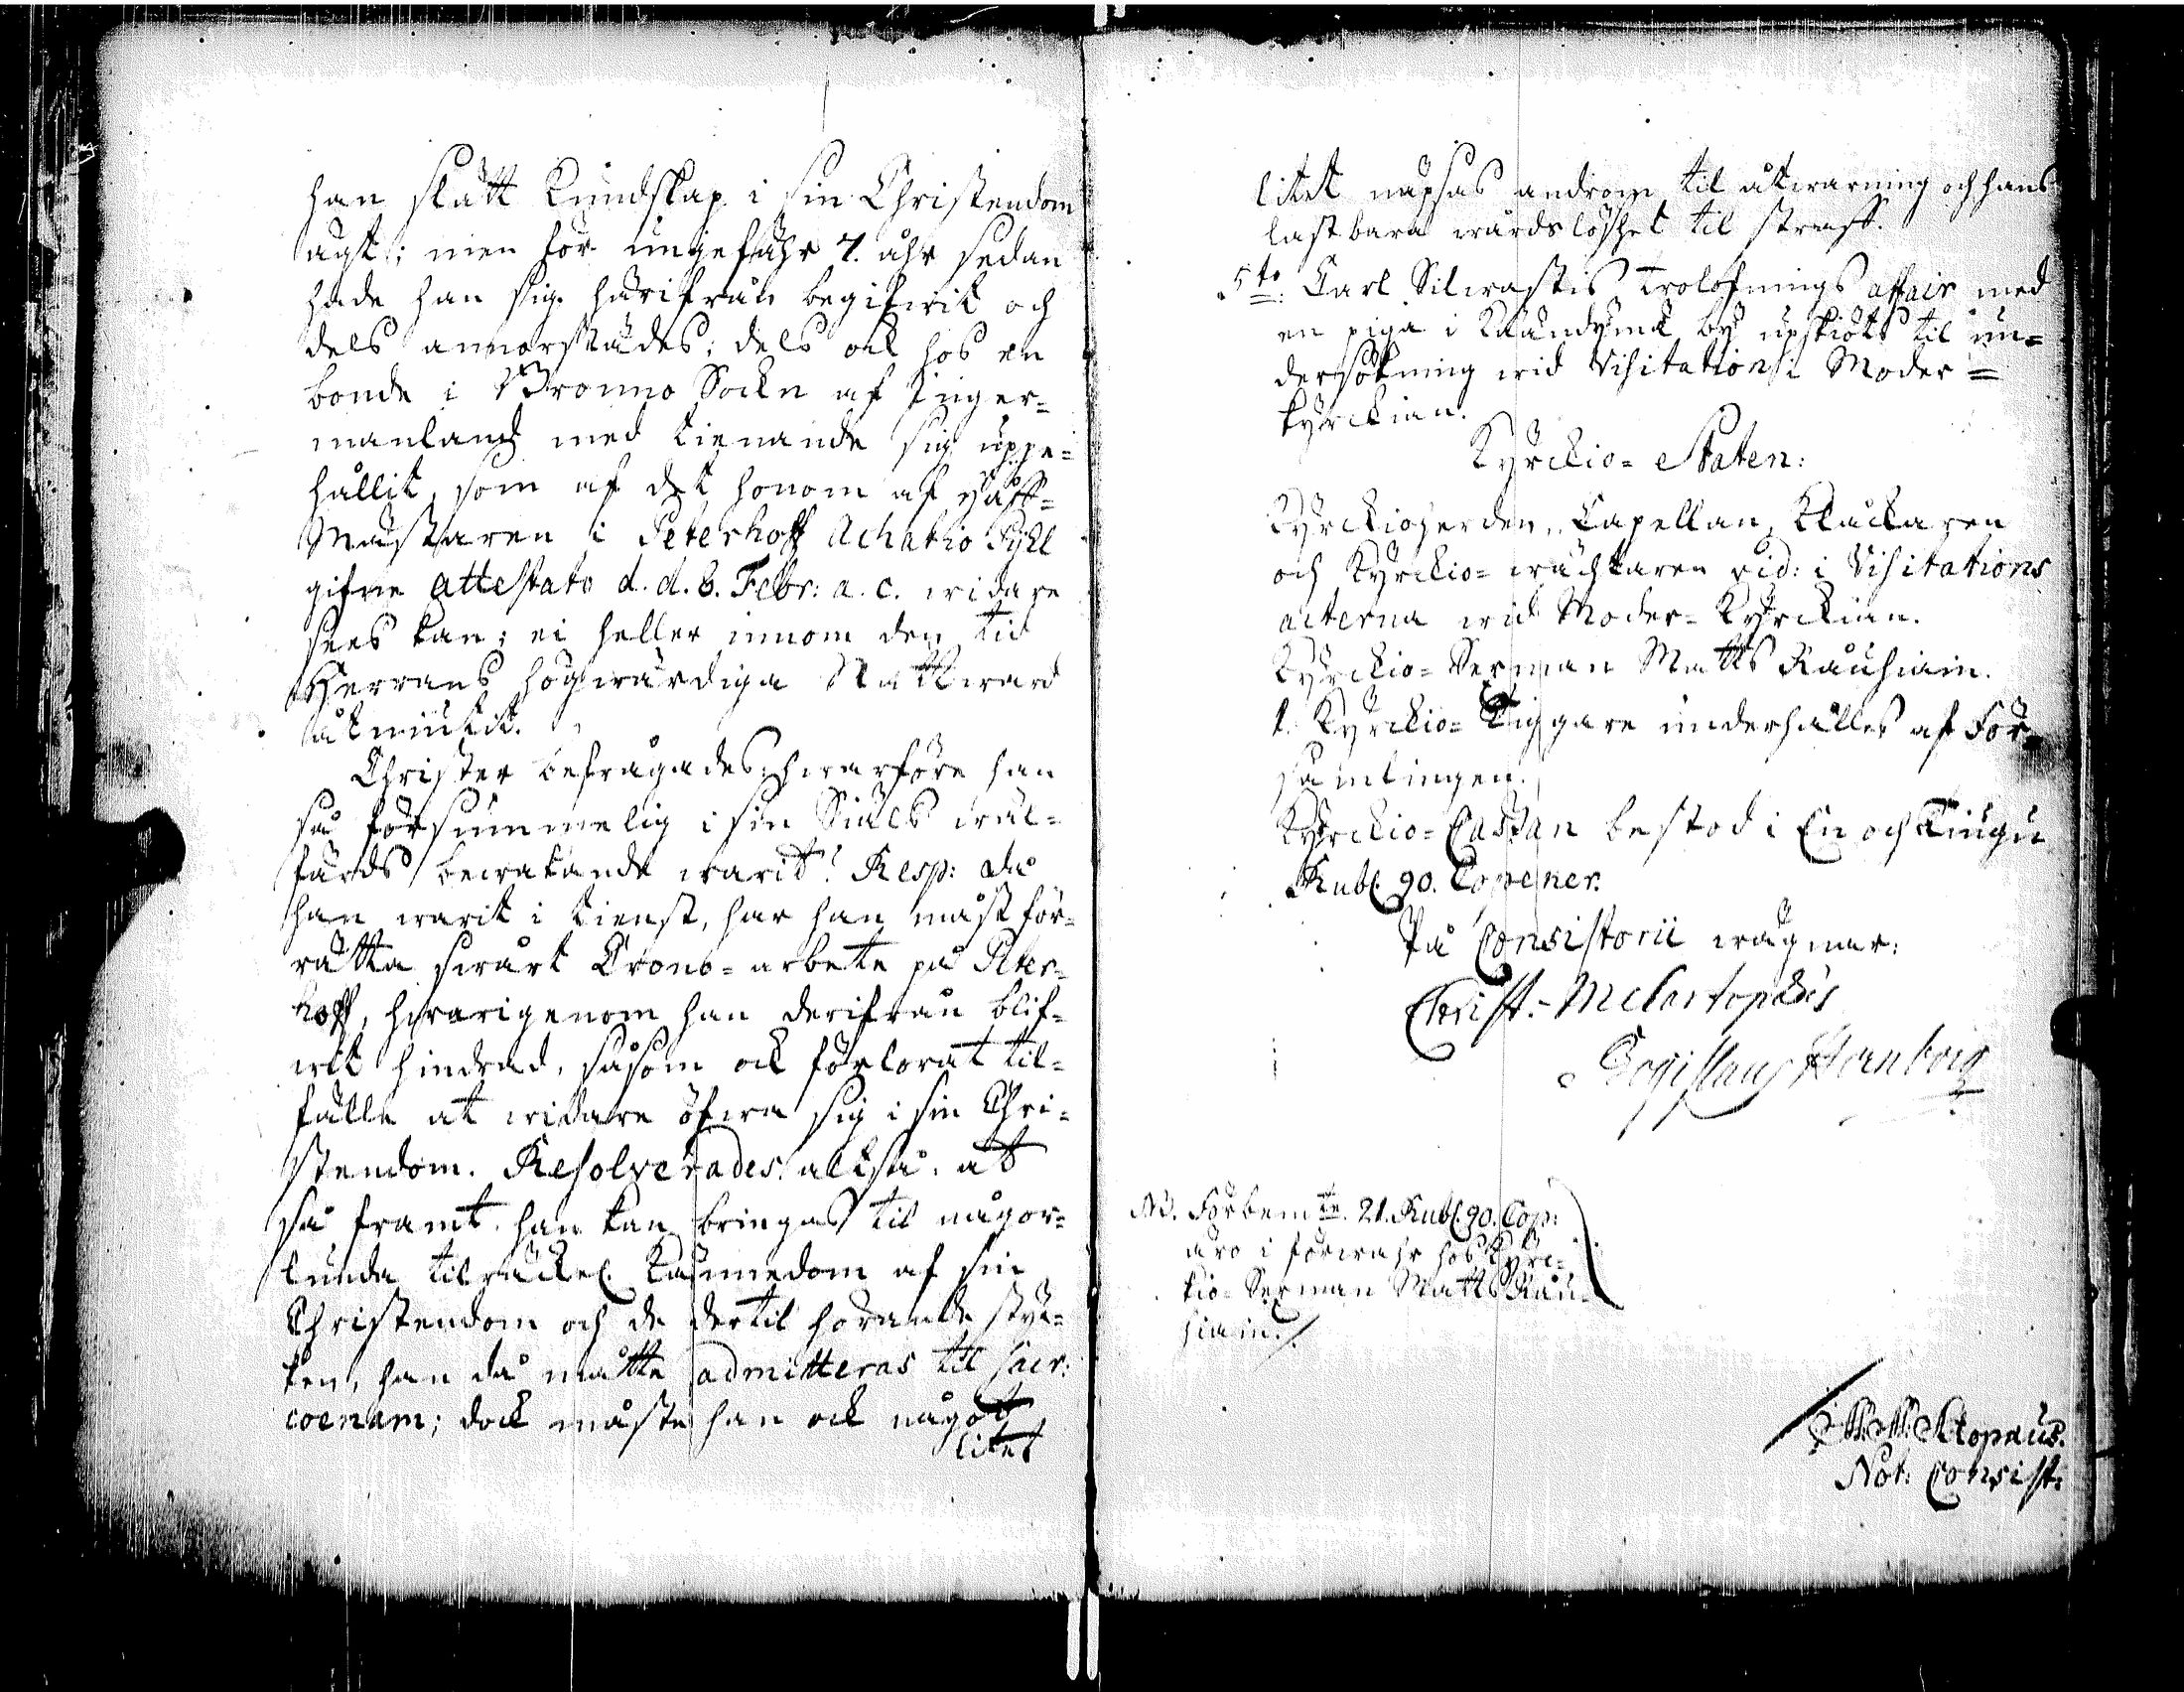 han slätt Kundskap i sin Christendom
ägt; men för ungefähr 7. åhr sedan
hade han sig härifrån begifwit och
dels annorstädes, dels ock hos en
bonde i Bronno Sockn af Inger=
manland med tienande sig uppe=
hållit, som af det honom af Håff=
Mästaren i Peterhoff Achatio Pihl
gifne Attestato d. d. 6. Febr: a. c. widare
sees kan; ei heller innom den tid
Herrans högwärdiga Nattward
åtniutit.
Christer befrågades: hwarföre han
så försummelig i sin Siäls wäl=
färds betraktande warit? Resp: då
han warit i tienst, har han måst för=
rätta swårt Crono=arbete på Peter=
hoff, hwarigenom han derifrån blif=
wit hindrad, såsom ock förlorat til=
fälle at widare öfwa sig i sin Chri=
stendom. Resolverades altså: at
så framt han kan bringas til någor=
lunda tilräckel. Kännedom af sin
Christendom och de dertil hörande styc=
ken, han då måtte admitteras til sacr:
coenam; dock måste han ock något
litet
litet näpsas androm til åtwarning och hans
lastbara wårdslöshet til straff.
5to: Carl Silwastis trolofnings affair med
en piga i by upskiöts til un=
dersökning wid Visitation i Moder=
kyrckian.
Kyrckio=Staten:
Kyrckioherden, Capellan, Klåckaren
och Kyrckio=wächtaren vid: i Visitations
acterna wid Moder=Kyrckian.
Kyrckio=Värman Matts Rauhiain.
1. Kyrckio=Tiggare underhålles af För=
samlingen.
Kyrckio=Cassan bestod i En och Tiugu
Rubl. 90. Copener.
På Consistorii wägnar:
Christ. Melartopæus
Bogislaus Hornborg
NB. Förbemte. 21. Rubl. 90. Cop:
äro i förwahr hos Kyrc=
kio=Värman Matts Rau=
hiain./.
Alopæus.
Not: Consist: